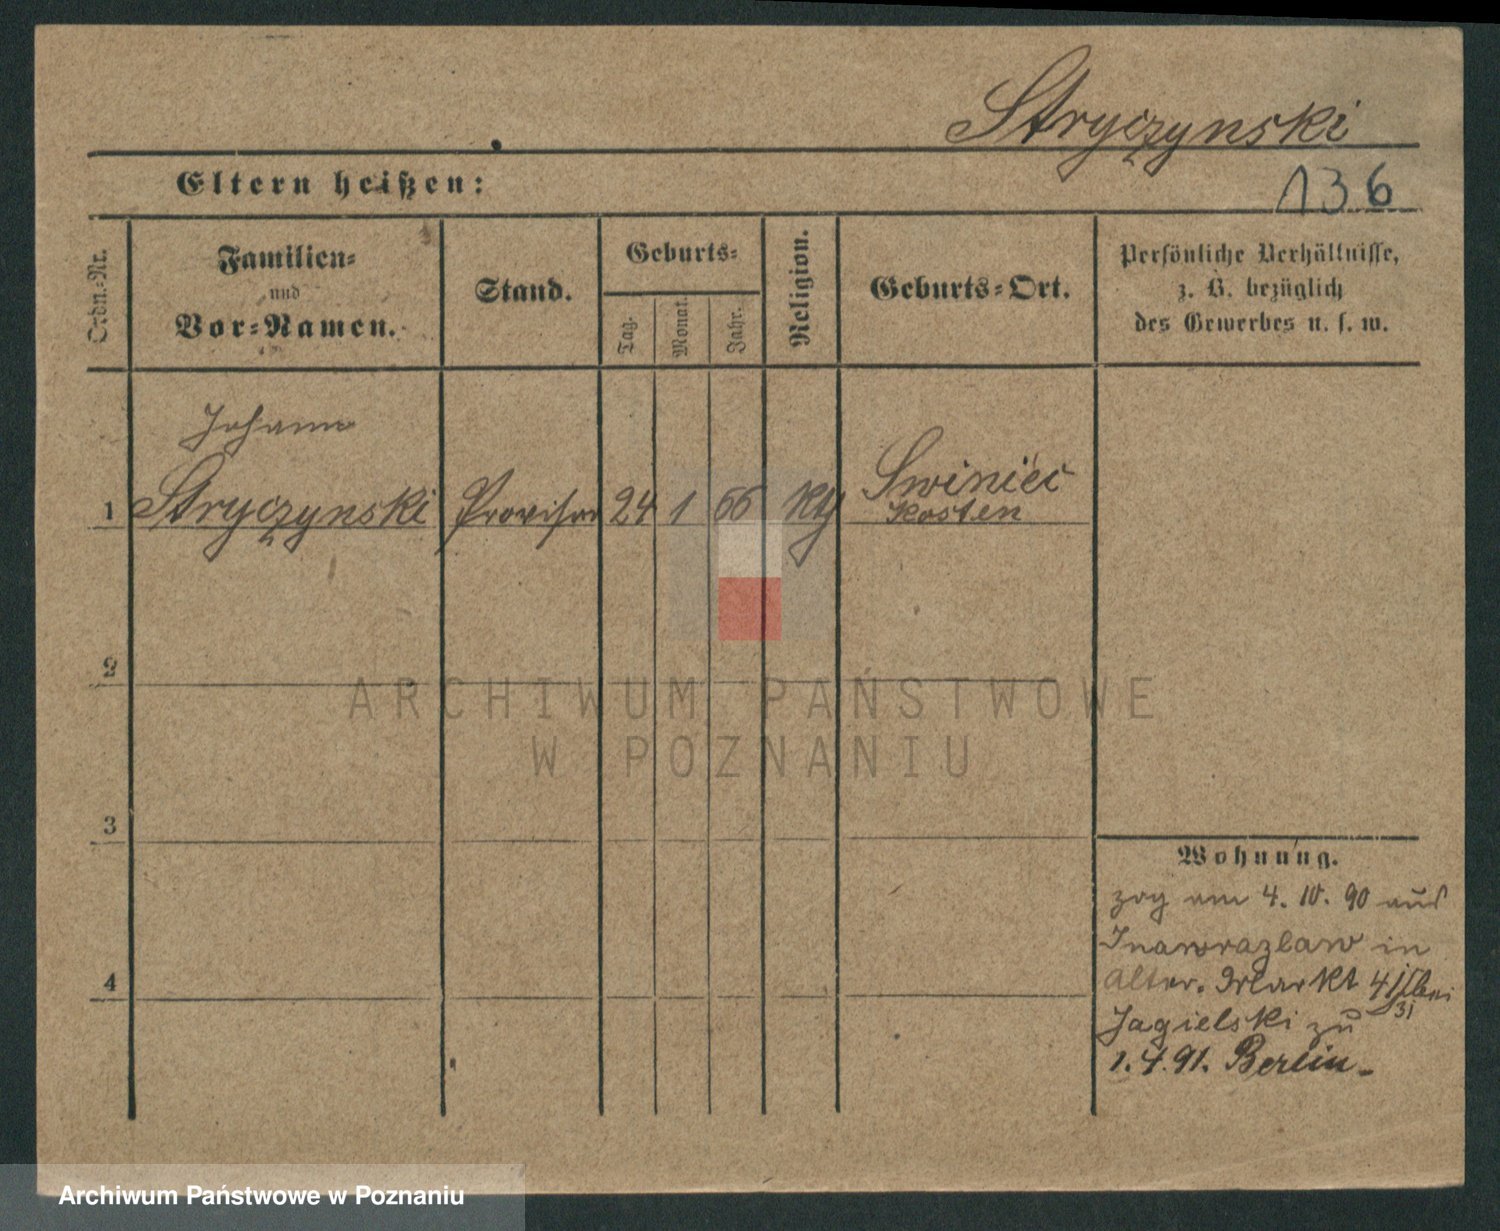 Stryczynski
Eltern heißen:
136
Ordn.-Nr.
Familien-
und
Vor-Namen.
Stand.
Geburts-
Tag.
Monat.
Jahr.
Religion.
Geburts-Ort.
Persönliche Verhältnisse,
z. B. bezüglich
des Gewerbes u. s. w.
Johann
1 Stryczynski Provisor 24 1 66 kth Swiniec
Kosten
2
ARCHIWUM PAŃSTWOWE
W POZNANIU
3
Wohnung.
zog am 4. 10. 90 aus
Inowrazlaw in
Alter. Markt 41 bei
31
Jagielski zu
4
1.4.91. Berlin.
Archiwum Państwowe w Poznaniu